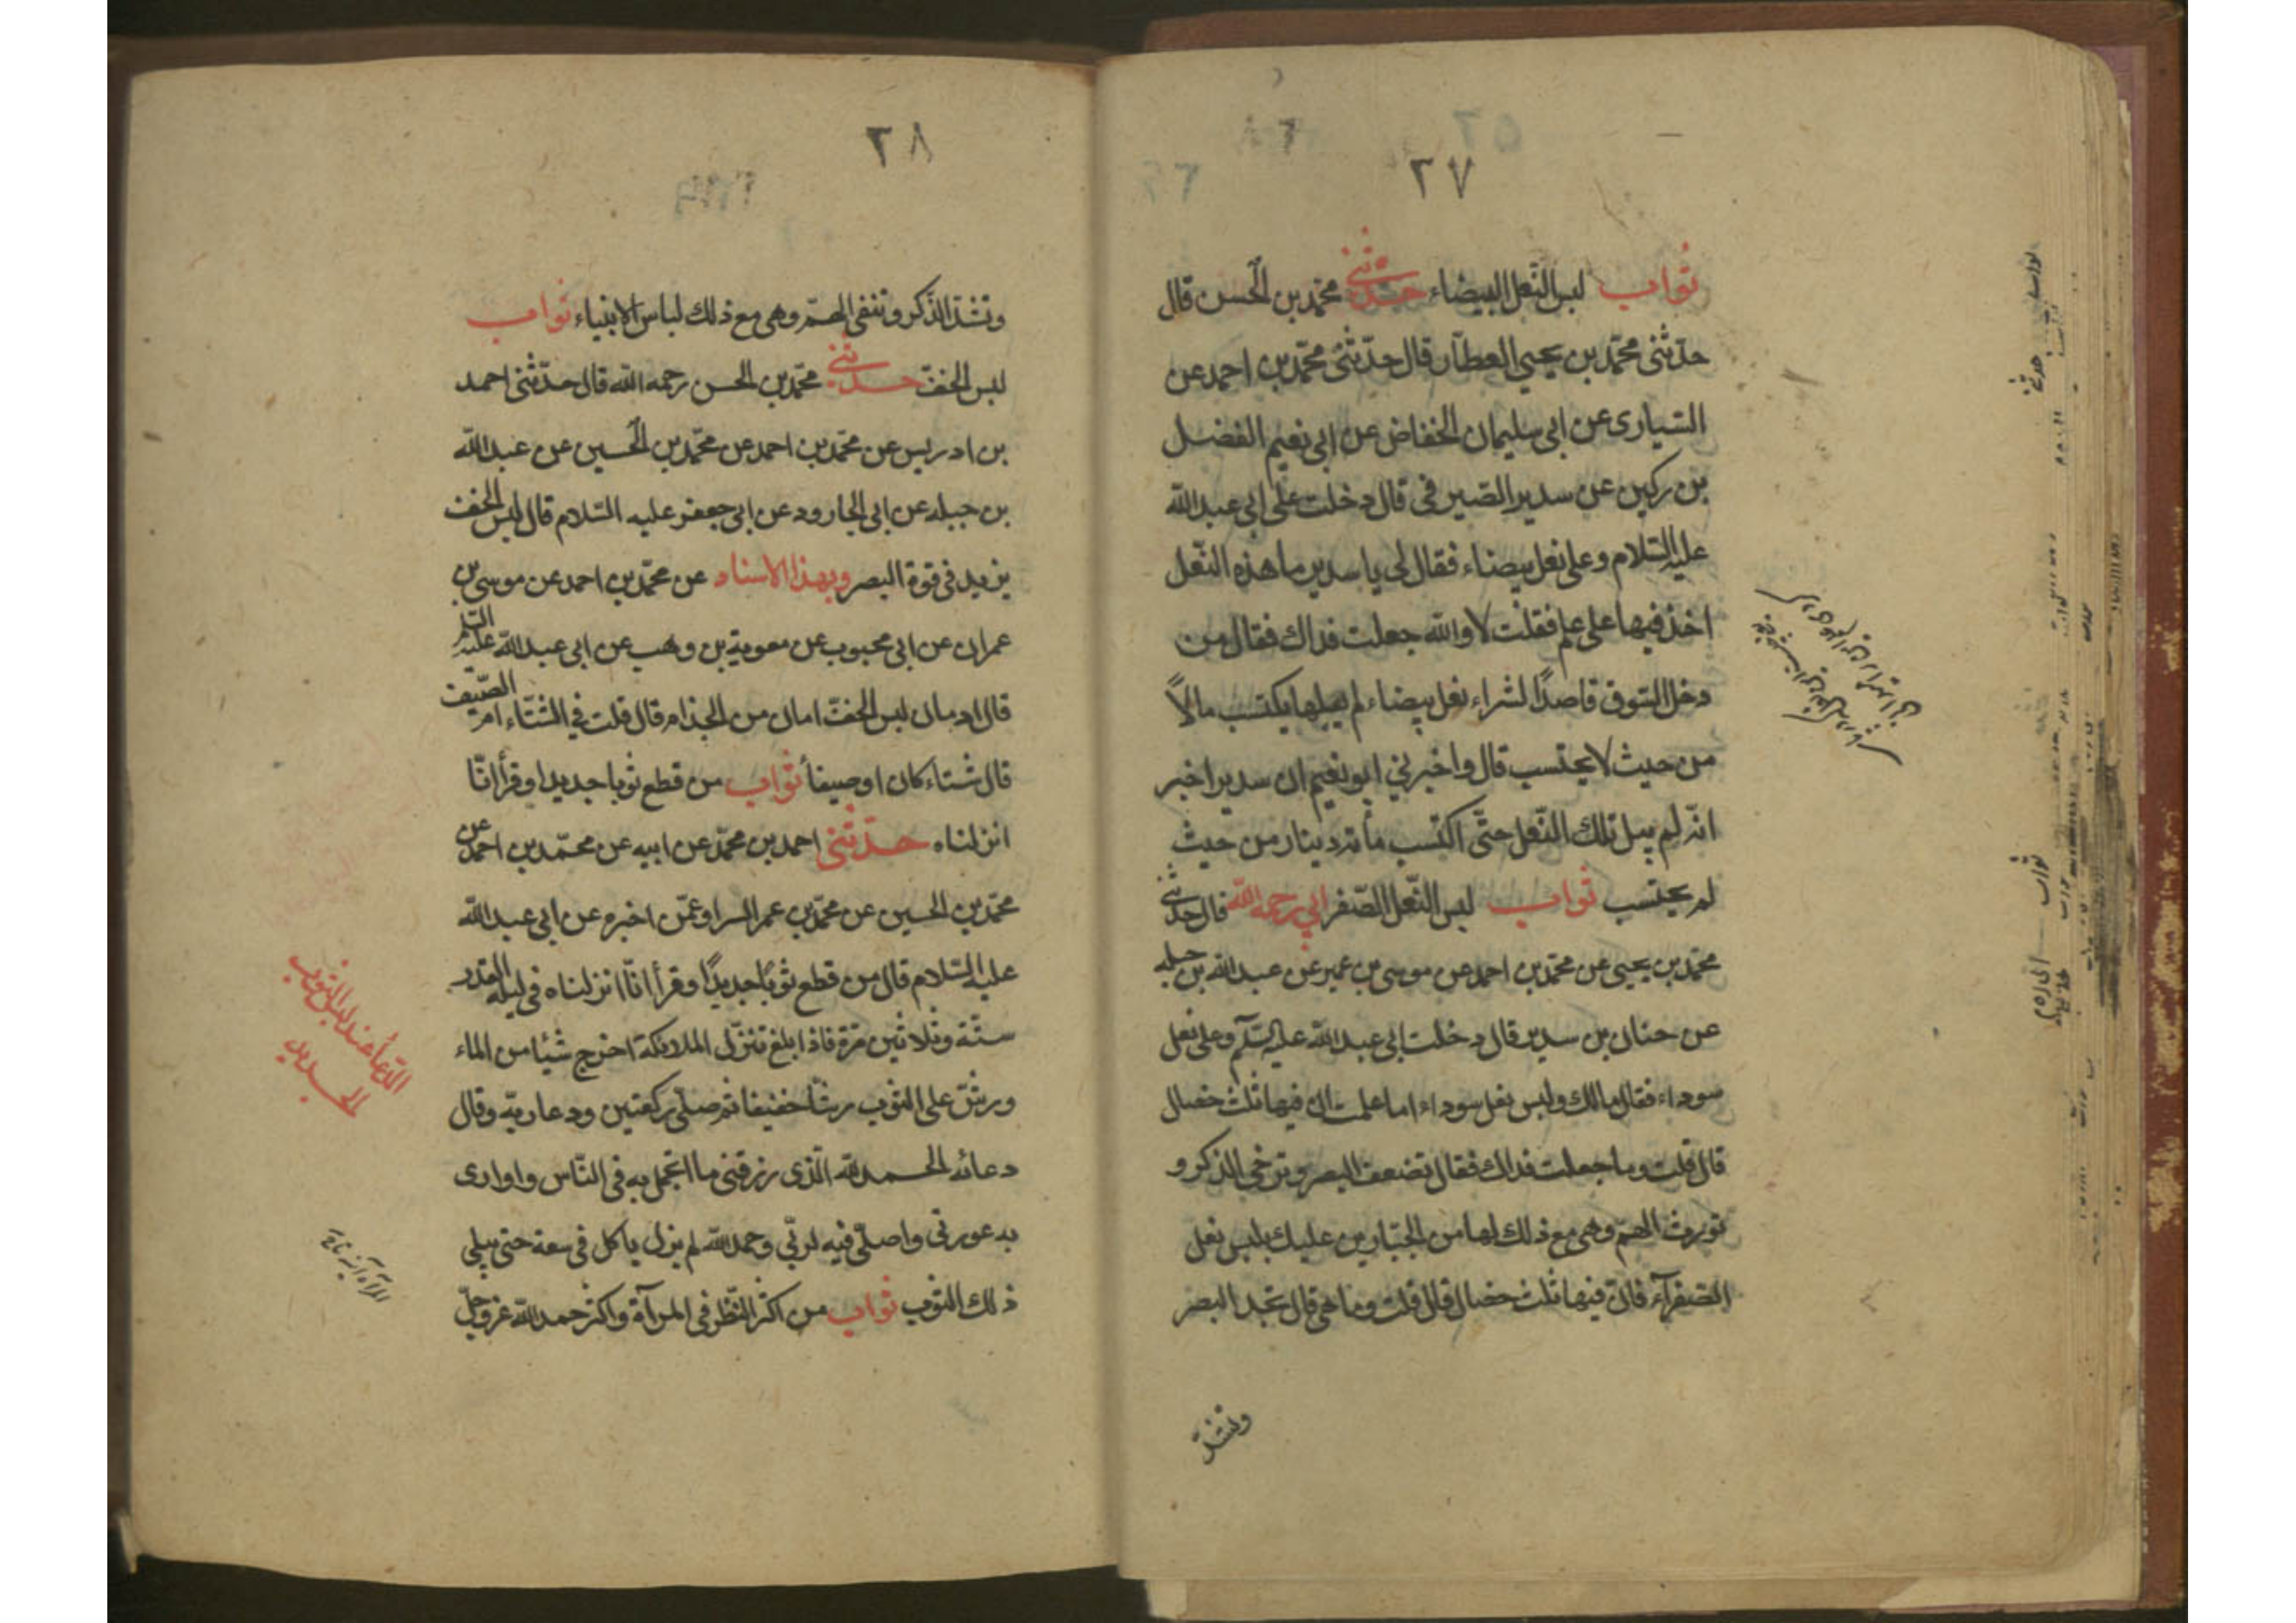 ٢٧
ثواب لبس النّعل البيضاء حدثنى محمّد بن الحسن قال
حدّثنى محمّد بن يحيي العطّار قال حدّثنى محمّد بن احمد عن
السّيارى عن ابى سليمان الخفاض عن ابى نعيم الفضل
بن ركين عن سدير الصّيرفى قال دخلت على ابى عبد الله
عليه السّلام وعلى نعل بيضاء فقال لى يا سدير ما هذه النّعل
اخذ فيها على علم فقلت لا والله جعلت فداك فقال من
دخل السّوق قاصدًا لشراء نعل بيضاء لم يبلها يكتسب مالاً
من حيث لا يحتسب قال واخبرنى ابو نعيم ان سديرا خبر
انّه لم يبل تلك النّعل حتّى اكتسب مأته دينار من حيث
لم يحتسب ثواب لبس النّعل الصّفر ابى رحمه الله قال حدثنى
محمّد بن يحيى عن محمّد بن احمد عن موسى بن عمير عن عبد الله بن جبله
عن حنان بن سدير قال دخلت ابى عبد الله عليه السّلم وعلى نعل
سوداء فقال مالك ولبس نعل سوداء اما علمت ان فيها ثلث خصال
قال قلت وما جعلت فداك فقال تضعف البصر وترخى الذكر و
تورث الهمّ وهى مع ذلك لها من الجبّارين عليك بلبس نعل
الصّفرآء فان فيها ثلث خصال قال قلت وما هى قال تحد البصر
وتشدّ
٢٨
وتشدّ الذّكر وتنفى الهمّ وهى مع ذلك لباس الانبياء ثواب
لبس الخفّ حدثنى محمّد بن الحسن رحمه الله قال حدّثنى احمد
بن ادريس عن محمّد بن احمد عن محمّد بن الحسين عن عبد الله
بن جبله عن ابى الجارود عن ابى جعفر عليه السّلام قال لبس الخف
يزيد فى قوة البصر وبهذا الاسناد عن محمّد بن احمد عن موسى بن
عمران عن ابى محبوب عن معوية بن وهب عن ابى عبد الله عليه السّلم
قال ادمان لبس الخفّ امان من الجذام قال قلت فى الشّتاء ام فى الصّيف
قال شتاء كان او صيفاً ثواب من قطع ثوبا جديدا وقرأ انّا
انزلناه حدّثنى احمد بن محمّد عن ابيه عن محمّد بن احمد عن
محمّد بن الحسين عن محمّد بن عمر السراد عمّن اخبره عن ابى عبد الله
عليه السّلام قال من قطع ثوبًا جديدًا وقرأ انّا انزلناه فى ليلة القدر
ستّة وثلاثين مرّة فاذا بلغ تنزّل الملائكة اخرج شيئا من الماء
ورشّ على الثوب رشّا خفيفا ثم صلّى ركعتين ودعا ربّه وقال
دعائه الحمد لله الّذى رزقنى ما اتجمّل به فى النّاس واوارى
به عورتى واصلّى فيه لربّى وحمد الله لم يزل ياكل فى سعة حتى يبلى
ذلك الثوب ثواب من اكثر النّظر فى المرآة واكثر حمد الله عزوجلّ
الدّعاء عند لبس الثوب
الجديد